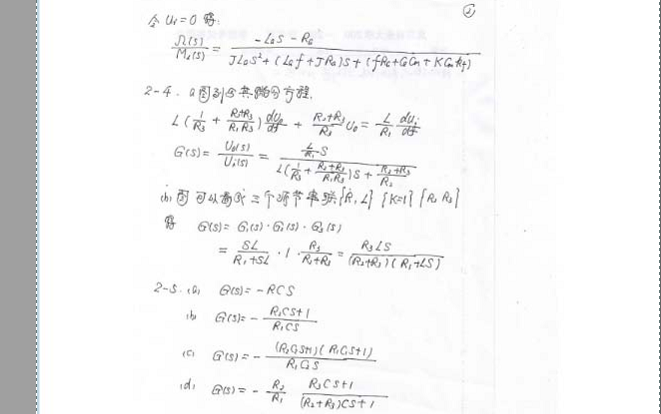 ②
令 U₁=0 得:
Ω(s)/M₂(s) = (-LₐS - Rₐ)/(JLₐS² + (Lₐf + JRₐ)S + (fRₐ + CₑCₘ + KCₘKf))
2-4. a图列出其微分方程.
L(1/R₃ + (R₂+R₃)/(R₁R₃)) du₀/dt + (R₂+R₃)/R₃ U₀ = L/R₁ dui/dt
G(s) = U₀(s)/Ui(s) = (L/R₁ S)/(L(1/R₃ + (R₂+R₃)/(R₁R₃))S + (R₂+R₃)/R₃)
(b) 图可以看成三个环节串联{R₁, L} {K=1} {R₂ R₃}
得 G(s) = G₁(s)·G₂(s)·G₃(s)
= SL/(R₁+SL) · 1 · R₃/(R₂+R₃) = R₃LS/((R₂+R₃)(R₁+LS))
2-5. (a) G(s) = -RCS
(b) G(s) = - (R₁CS+1)/(R₁CS)
(c) G(s) = - ((R₁C₁S+1)(R₂C₂S+1))/(R₁C₂S)
(d) G(s) = - R₂/R₁ (R₃CS+1)/((R₂+R₃)CS+1)